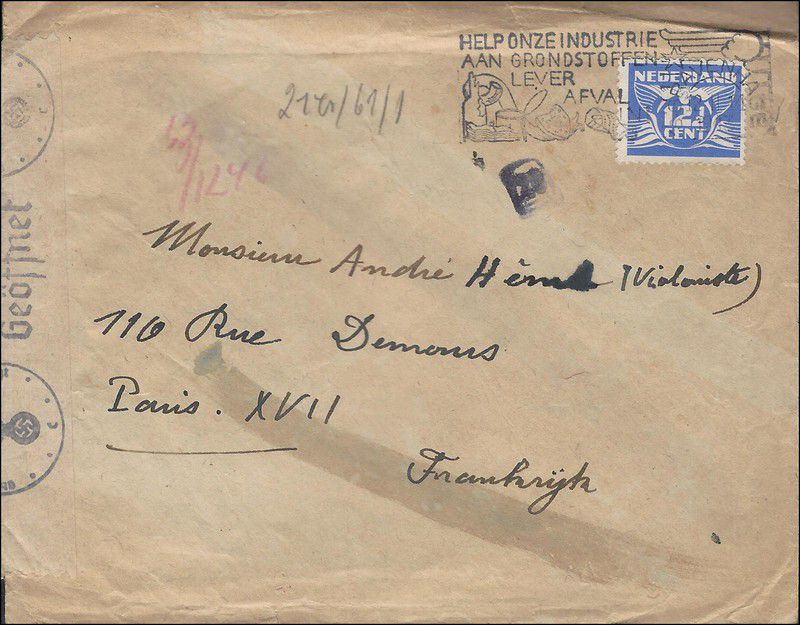 HELP ONZE INDUSTRIE
AAN GRONDSTOFFEN
LEVER
AFVAL
IN
NEDERLAND
12½
CENT
Geöffnet
Monsieur André (Violoniste)
116 Rue Demours
Paris. XVII
Frankrijk